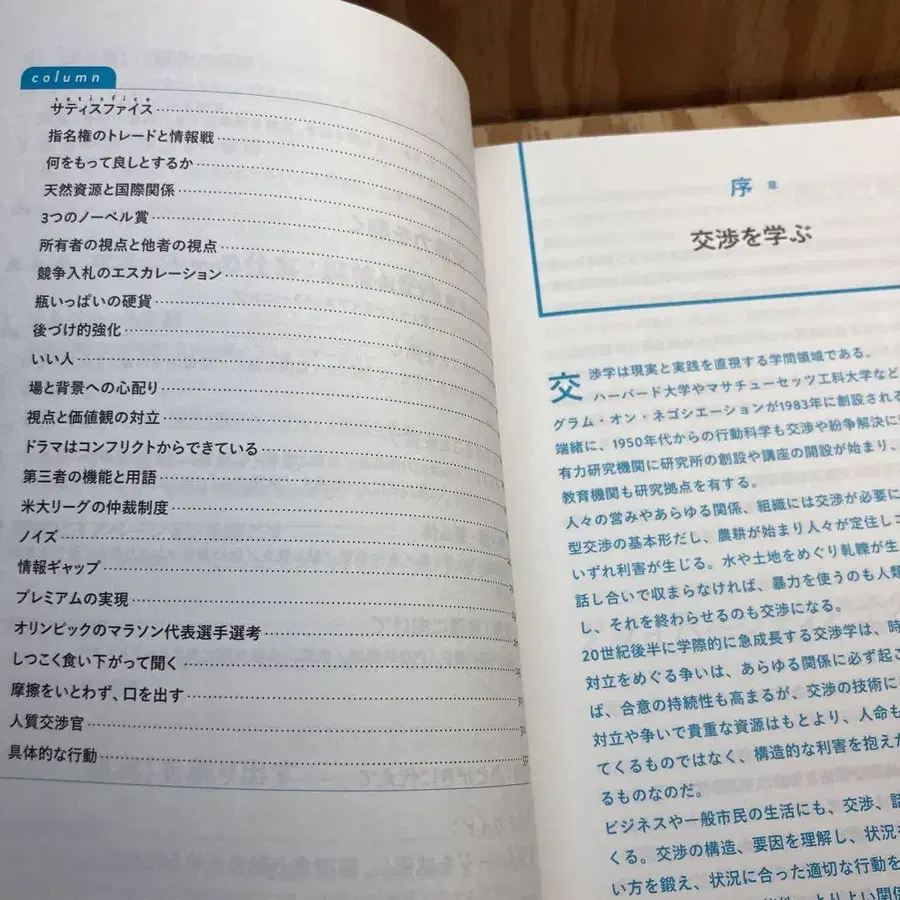 column
satisfice
サティスファイス
指名権のトレードと情報戦
何をもって良しとするか
天然資源と国際関係
3つのノーベル賞
所有者の視点と他者の視点
競争入札のエスカレーション
瓶いっぱいの硬貨
後づけ的強化
いい人
場と背景への心配り
視点と価値観の対立
ドラマはコンフリクトからできている
第三者の機能と用語
米大リーグの仲裁制度
ノイズ
情報ギャップ
プレミアムの実現
オリンピックのマラソン代表選手選考
しつこく食い下がって聞く
摩擦をいとわず、口を出す
人質交渉官
具体的な行動
序章
交渉を学ぶ
交渉学は現実と実践を直視する学問領域である。
ハーバード大学やマサチューセッツ工科大学など
グラム・オン・ネゴシエーションが1983年に創設される
端緒に、1950年代からの行動科学も交渉や紛争解決に
有力研究機関に研究所の創設や講座の開設が始まり、
教育機関も研究拠点を有する。
人々の営みやあらゆる関係、組織には交渉が必要に
型交渉の基本形だし、農耕が始まり人々が定住しコ
いずれ利害が生じる。水や土地をめぐり軋轢が生
話し合いで収まらなければ、暴力を使うのも人類
し、それを終わらせるのも交渉になる。
20世紀後半に学際的に急成長する交渉学は、時
対立をめぐる争いは、あらゆる関係に必ず起こ
ば、合意の持続性も高まるが、交渉の技術に
対立や争いで貴重な資源はもとより、人命も
てくるものではなく、構造的な利害を抱えた
るものなのだ。
ビジネスや一般市民の生活にも、交渉、話
くる。交渉の構造、要因を理解し、状況を
い方を鍛え、状況に合った適切な行動を
よりよい関係